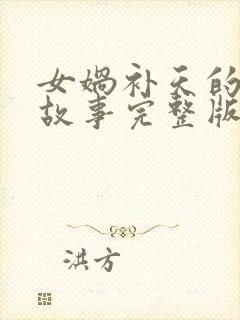 女娲补天的
故事完整版
洪方